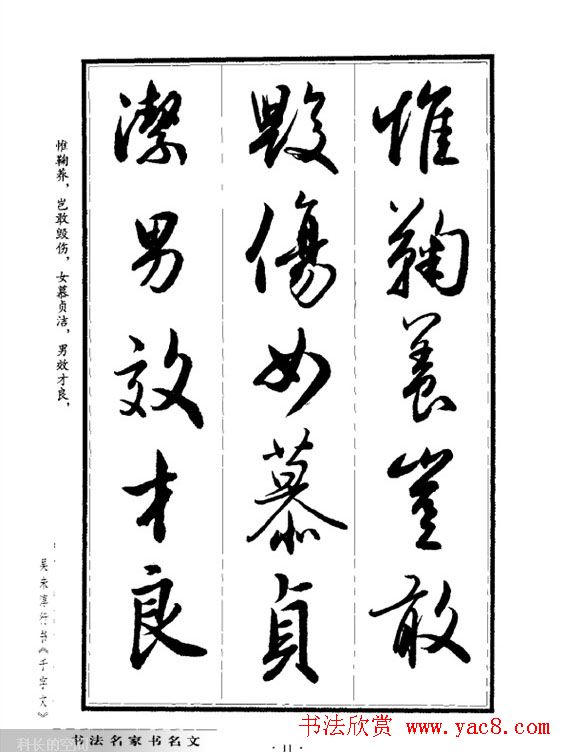 惟鞠養豈敢
毀傷女慕貞
潔男效才良
惟鞠养，岂敢毁伤，女慕贞洁，男效才良，
吴未淳行书《千字文》
书法名家书名文
· 11 ·
科长的空间
书法欣赏 www.yac8.com